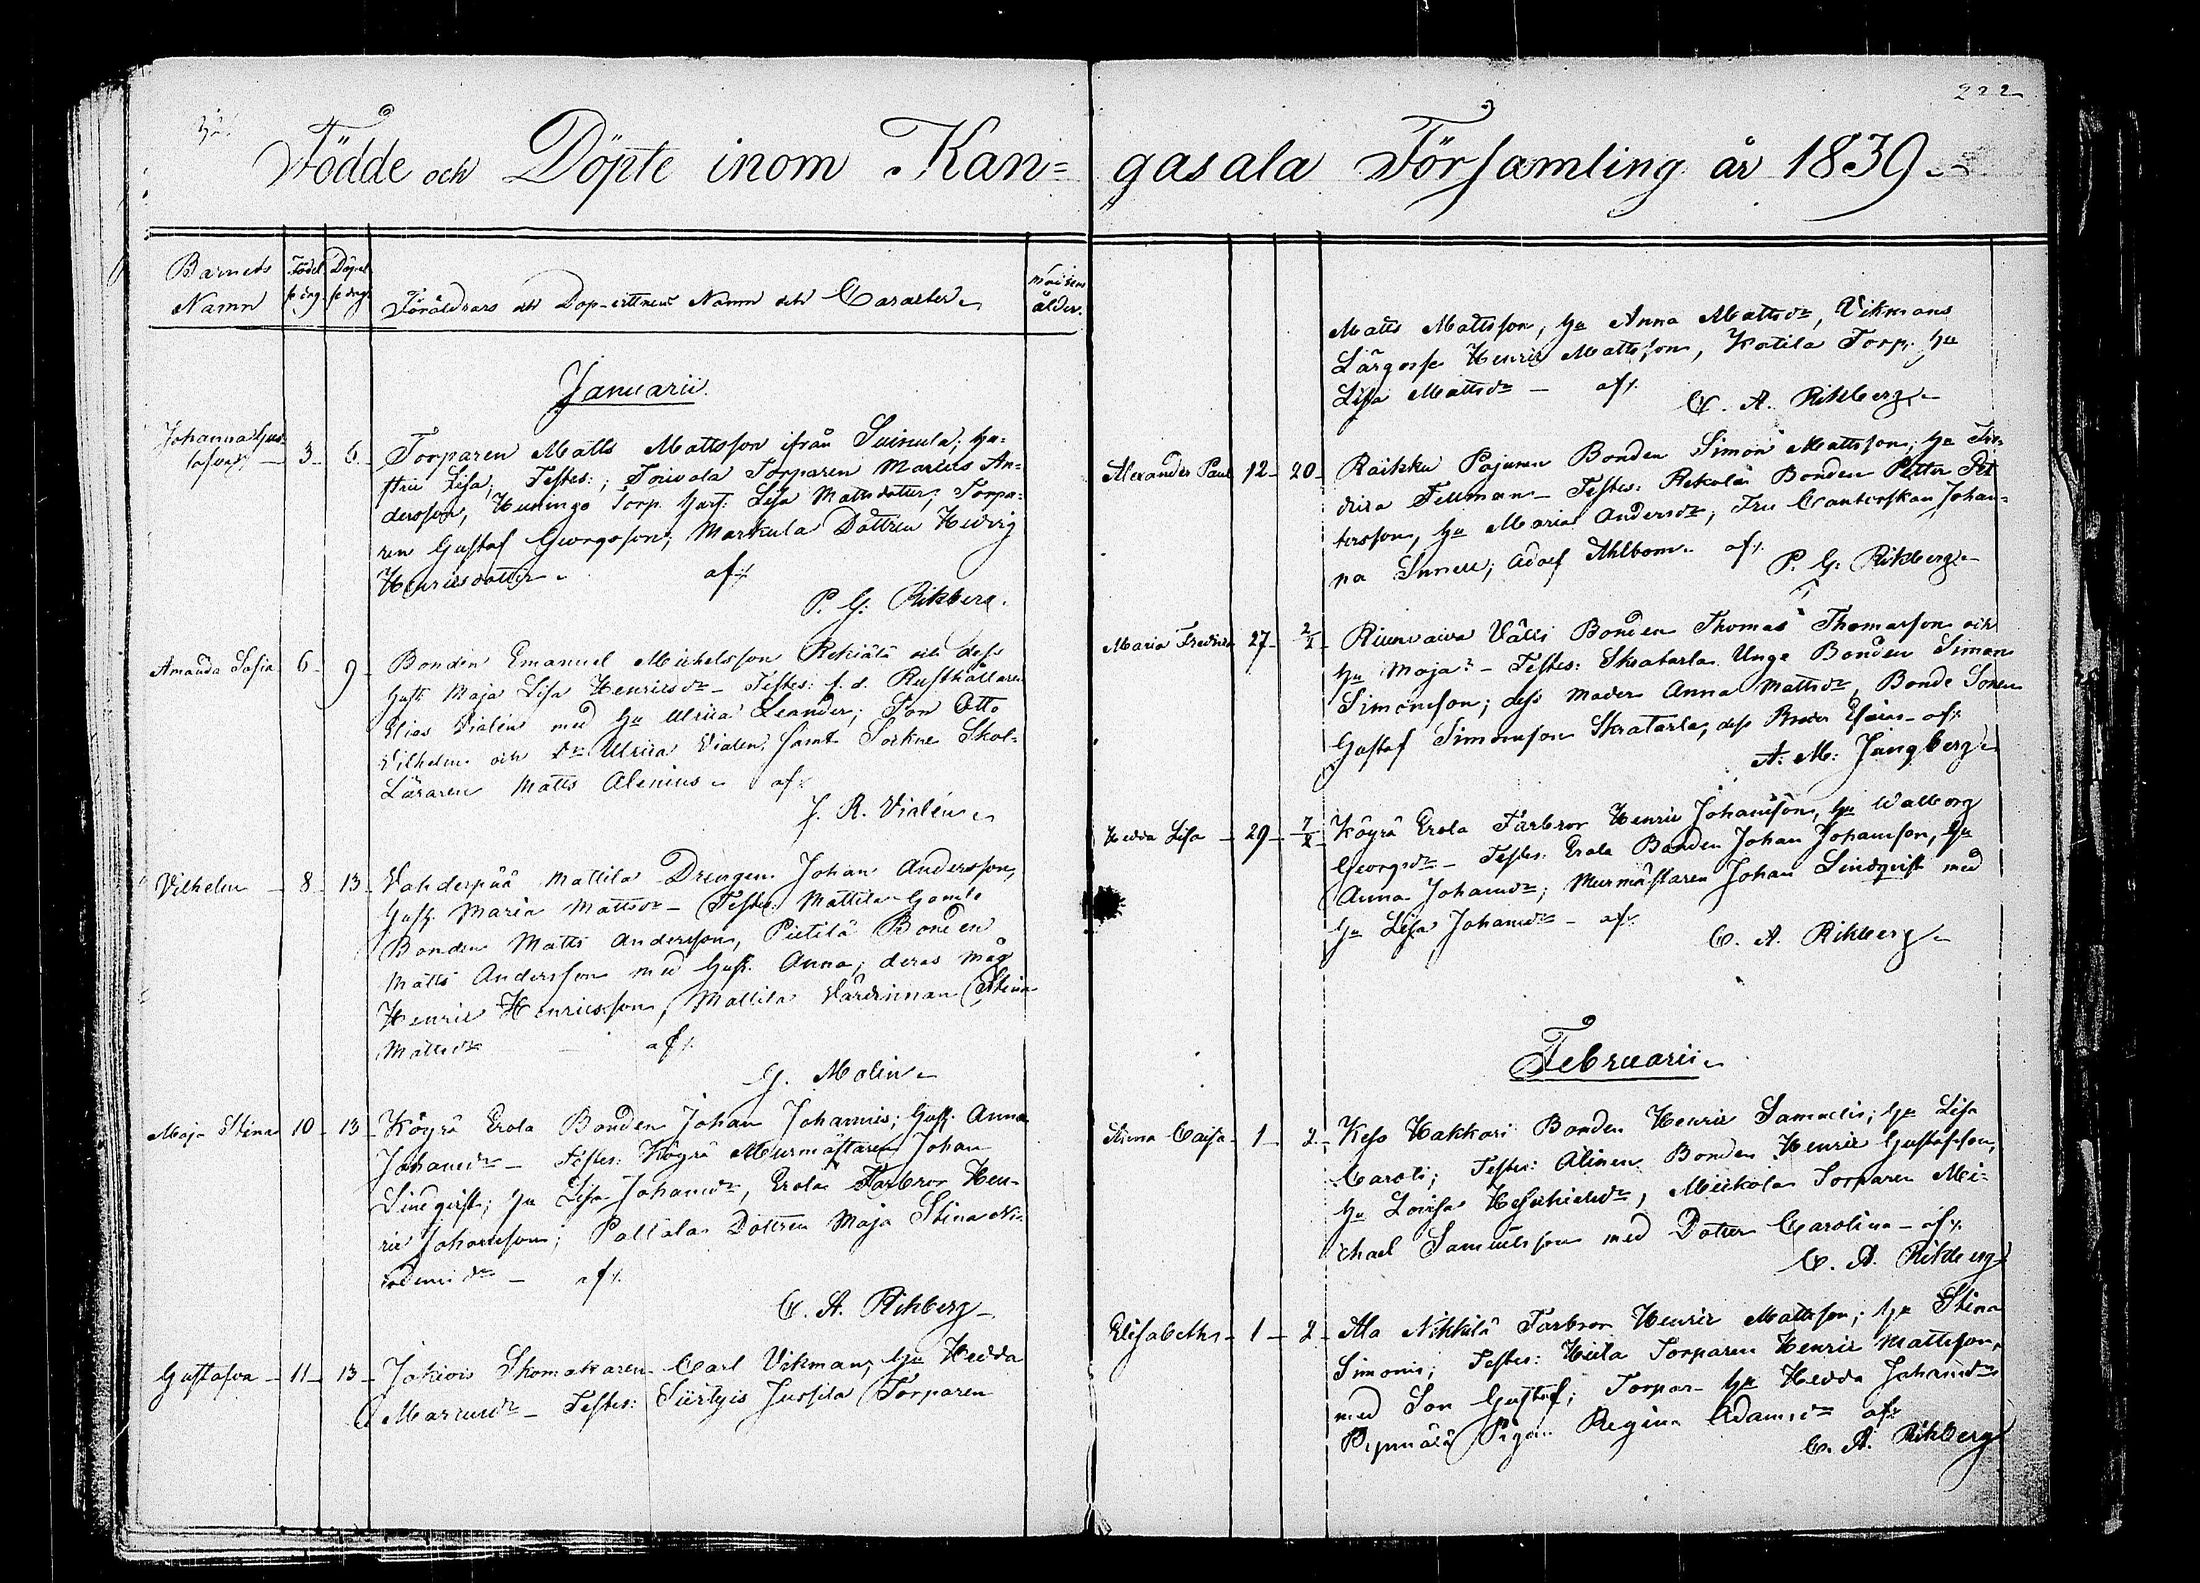 222
Födde och Döpte inom Kan=
gasala Församling år 1839.
Barnets Namn
Födel
se dag.
Döpel
se dag.
Föräldrars och Dop-vittnens Namn och Caracter.
Modrens
ålder.
Januarii.
Johanna Gus-
tafva 3 6 Torparen Matts Mattsson ifrån Suinula; hu-
stru Lisa; Testes: Toivala Torparen Marcus An-
dersson, Huninge Torp. hust: Lisa Mattsdotter; Torpa-
ren Gustaf Georgsson; Markula Dottren Hedvig
Henricsdotter. af
P. G. Rikberg.
Amanda Sofia 6 9 Bonden Emanuel Michelsson Rekiälä och dess
hust: Maja Lisa Henricsdr - Testes: f.d. Rusthållaren
Elias Vialén med hu Ulrica Leander; Son Otto
Vilhelm och Dr Ulrica Vialen, samt Sockne Skol-
Läraren Matts Alenius. af
J. R. Vialén.
Vilhelm 8 13 Vahderpää Mattila Drengen Johan Andersson,
hust. Maria Mattsdr - Testes: Mattila Gamle
Bonden Matts Andersson, Pietilä Bonden
Matts Andersson med hust. Anna, deras måg
Henric Henricsson, Mattila Värdinnan Stina
Mattsdr af
G. Molin.
Maja Stina 10 13 Köyrä Erola Bonden Johan Johannis; hust: Anna
Johansdr - Testes: Köyrä Murmästaren Johan
Lindqvist; hu Lisa Johansdr, Erola Farbror Hen-
ric Johansson; Pallala Dottren Maja Stina Ni-
codemidr - af
C. A. Rikberg.
Gustafva 11 13 Jokiois Skomakaren Carl Vikman, hu Hedda
Marcusdr - Testes: Siirtyis Jussila Torparen
Matts Mattsson, hu Anna Mattsdr, Vikmans
Lärgosse Henric Mattsson, Kotila Torp. hu
Lisa Mattsdr - af
C. A. Rikberg.
Alexander Paul 12 20 Raikku Pajunen Bonden Simon Mattsson, hu Fre-
drica Fellman - Testes: Rekola Bonden Petter Pet-
tersson, hu Maria Andersdr, Fru Cantorskan Johan-
na Sinell; Adolf Ahlbom. af
P. G. Rikberg.
Maria Fredrica 27 2/2 Riunvaiva Välli Bonden Thomas Thomasson och
hu Maja: - Testes: Skratarla Unge Bonden Simon
Simonsson; dess Moder Anna Mattsdr, Bonde Sonen
Gustaf Simonsson Skratarla, dess Broder Esaias - af
A. M. Jungberg.
Hedda Lisa 29 7/2 Köyrä Erola Farbror Henric Johansson, hu Walborg
Georgsdr - Testes: Erola Bonden Johan Johansson, hu
Anna Johansdr; Murmästaren Johan Lindqvist med
hu Lisa Johansdr - af
C. A. Rikberg.
Februarii.
Stina Caisa 1 2 Keso Hakkari Bonden Henric Samuelis; hu Lisa
Caroli; Testes: Alinen Bonden Henric Gustafsson,
hu Lovisa Heskielsdr, Mickola Torparen Mi-
chael Samuelsson med Dotter Carolina - af
C. A. Rikberg.
Elisabetha 1 2 Ala Nikkilä Farbror Henric Mattsson; hu Stina
Simonis; Testes: Torparen Henric Mattsson,
med Son Gustaf; Torpar- hu Hedda Johansdr
Pigan Regina Adamsdr af
C. A. Rikberg